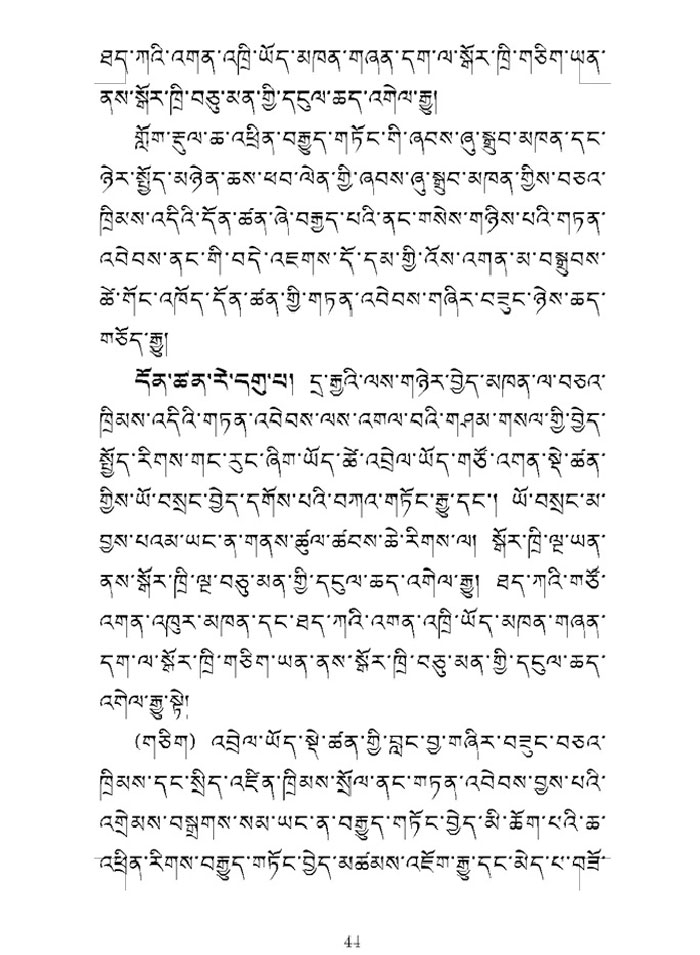 ཐད་ཀའི་འགན་འཁྲི་ཡོད་མཁན་གཞན་དག་ལ་སྒོར་ཁྲི་གཅིག་ཡན་
ནས་སྒོར་ཁྲི་བཅུ་མན་གྱི་དངུལ་ཆད་འགེལ་རྒྱུ།
གློག་རྡུལ་ཆ་འཕྲིན་བརྒྱུད་གཏོང་གི་ཞབས་ཞུ་སྒྲུབ་མཁན་དང་
ཉེར་སྤྱོད་མཉེན་ཆས་ཕབ་ལེན་གྱི་ཞབས་ཞུ་སྒྲུང་མཁན་གྱིས་བཅའ་
ཁྲིམས་འདིའི་དོན་ཚན་ཞེ་བརྒྱད་པའི་ནང་གསེས་གཉིས་པའི་གཏན་
འབེབས་ནང་གི་བདེ་འཇགས་དོ་དམ་གྱི་འོས་འགན་མ་བསྒྲུབས་
ཚེ་གོང་འཁོད་དོན་ཚན་གྱི་གཏན་འབེབས་གཞིར་བཟུང་ཉེས་ཆད་
གཅོད་རྒྱུ།
དོན་ཚན་རེ་དགུ་པ། དྲ་རྒྱའི་ལས་གཉེར་བྱེད་མཁན་ལ་བཅའ་
ཁྲིམས་འདིའི་གཏན་འབེབས་ལས་འགལ་བའི་གཤམ་གསལ་གྱི་བྱེད་
སྤྱོད་རིགས་གང་རུང་ཞིག་ཡོད་ཚེ་འབྲེལ་ཡོད་གཙོ་འགན་སྡེ་ཚན་
གྱིས་ཡོ་བསྲང་བྱེད་དགོས་པའི་བཀའ་གཏོང་རྒྱུ་དང་། ཡོ་བསྲང་མ་
བྱས་པའམ་ཡང་ན་གནས་ཚུལ་ཚབས་ཆེ་རིགས་ལ། སྒོར་ཁྲི་ལྔ་ཡན་
ནས་སྒོར་ཁྲི་ལྔ་བཅུ་མན་གྱི་དངུལ་ཆད་འགེལ་རྒྱུ། ཐད་ཀའི་གཙོ་
འགན་འཁུར་མཁན་དང་ཐད་ཀའི་འགན་འཁྲི་ཡོད་མཁན་གཞན་
དག་ལ་སྒོར་ཁྲི་གཅིག་ཡན་ནས་སྒོར་ཁྲི་བཅུ་མན་གྱི་དངུལ་ཆད་
འགེལ་རྒྱུ་སྟེ།
(གཅིག) འབྲེལ་ཡོད་སྡེ་ཚན་གྱི་བླང་བྱ་གཞིར་བཟུང་བཅའ་
ཁྲིམས་དང་སྲིད་འཛིན་ཁྲིམས་སྲོལ་ནང་གཏན་འབེབས་བྱས་པའི་
འགྲེམས་བསྒྲགས་སམ་ཡང་ན་བརྒྱུད་གཏོང་བྱེད་མི་ཆོག་པའི་ཆ་
འཕྲིན་རིགས་བརྒྱུད་གཏོང་བྱེད་མཚམས་འཇོག་རྒྱུ་དང་མེད་པ་གཟོ་
44